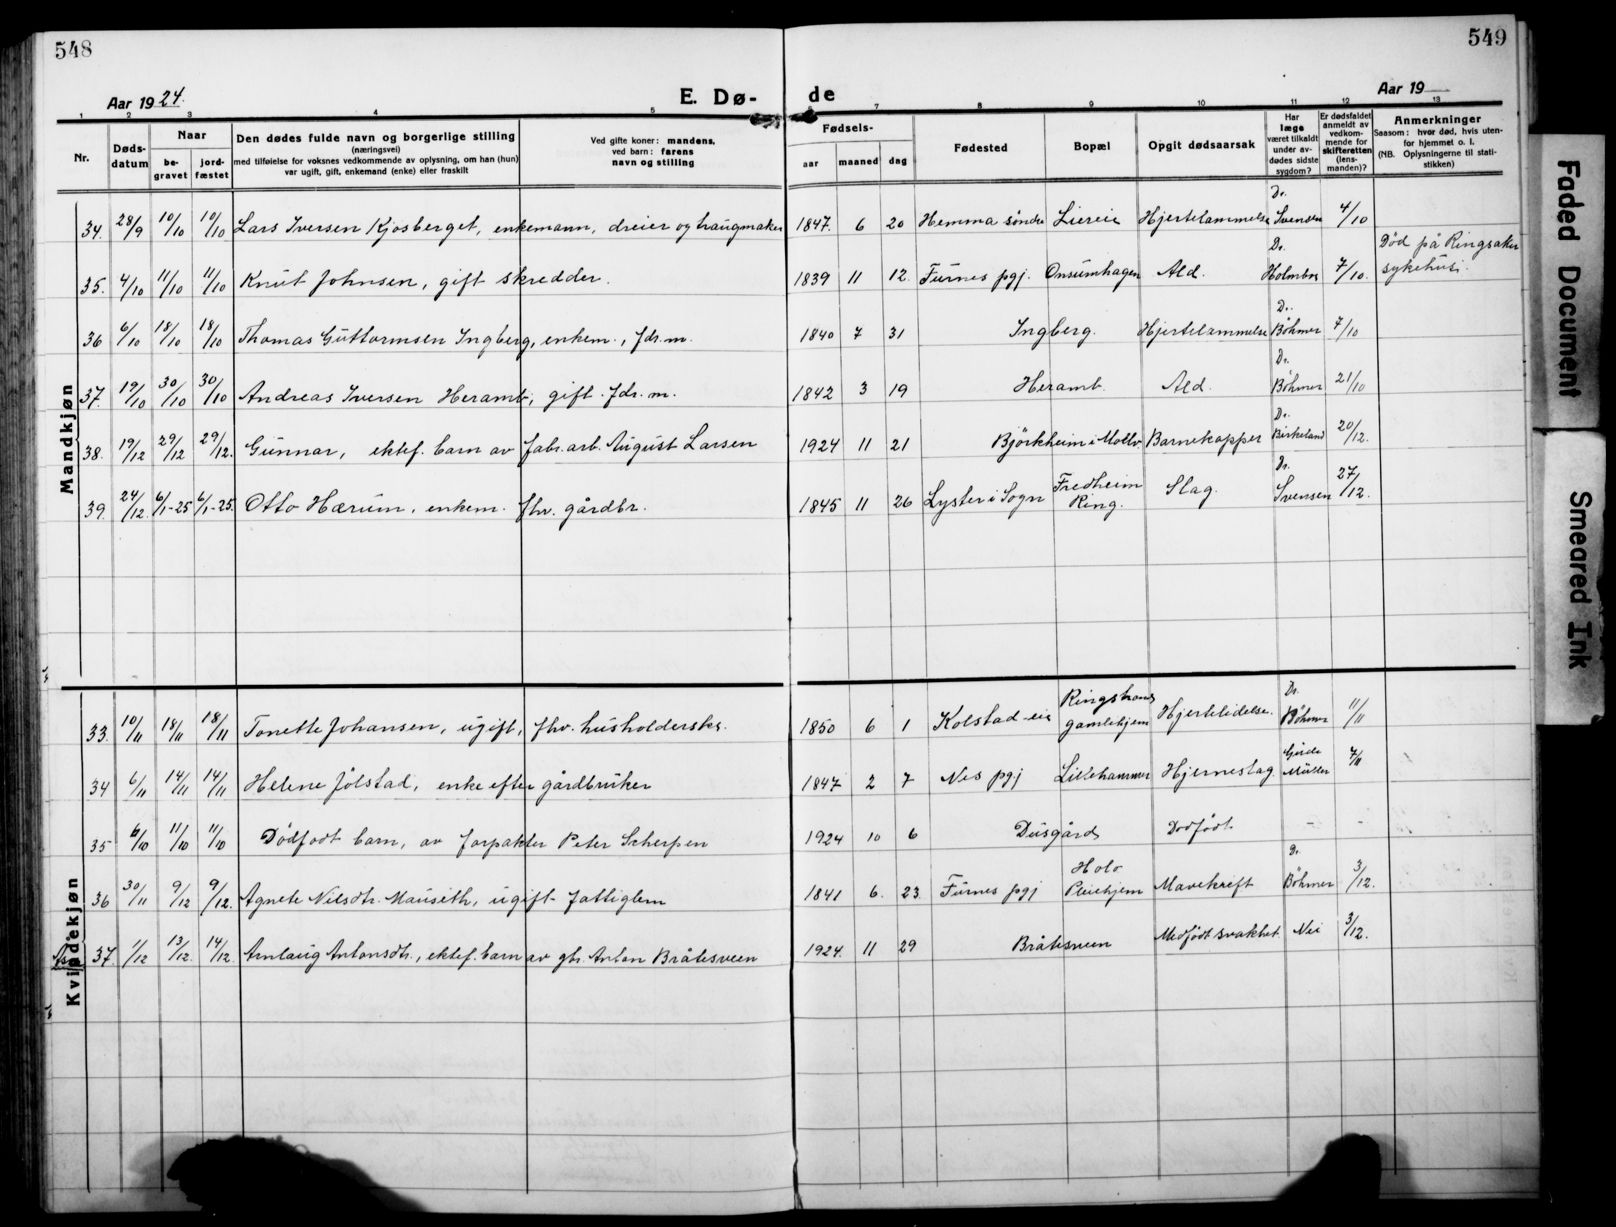 548
549
Aar 1924.
E. Dø-
de
Aar 19
1 2 3 4 5 6 7 8 9 10 11 12 13
Nr.
Døds-
datum
Naar
be-
gravet
jord-
fæstet
Den dødes fulde navn og borgerlige stilling
(næringsvei)
med tilføielse for voksnes vedkommende av oplysning, om han (hun)
var ugift, gift, enkemand (enke) eller fraskilt
Ved gifte koner: mandens,
ved barn: farens
navn og stilling
Fødsels-
aar
maaned
dag
Fødested
Bopæl
Opgit dødsaarsak
Har
læge
været tilkaldt
under av-
dødes sidste
sygdom?
Er dødsfaldet
anmeldt av
vedkom-
mende for
skifteretten
(lens-
manden)?
Anmerkninger
Saasom: hvor død, hvis uten-
for hjemmet o. l.
(NB. Oplysningerne til stati-
stikken)
Mandkjøn
34. 28/9 10/10 10/10 Lars Iversen Kjosberget, enkemann, dreier og haugmaker 1847. 6 20 Hemma søndre Liereie Hjertelammelse Dr. Svensen 4/10
35. 4/10 11/10 11/10 Knut Johnsen, gift skredder. 1839 11 12. Furnes pgj. Onsumhagen Ald. Dr. Holmboe 7/10. Død på Ringsaker
sykehus.
36 6/10 18/10 18/10 Thomas Guttormsen Ingberg, enkem., fdr. m. 1840 7 31 Ingberg. Hjertelammelse Dr. Böhmer 7/10
37. 19/10 30/10 30/10 Andreas Iversen Heramb, gift. fdr. m. 1842 3 19 Heramb. Ald. Dr. Böhmer 21/10
38. 19/12 29/12 29/12. Gunnar, ektef. barn av fabr.arb. August Larsen 1924 11 21 Björkheim i Moelv Barnekopper Dr. Birkeland 20/12.
39. 24/12. 6/1-25 6/1-25. Otto Hærum, enkem. fhv. gårdbr. 1845 11 26 Lyster i Sogn Fredheim
Ring. Slag. Dr. Svensen 27/12.
Kvindekjøn
33. 10/11 18/11 18/11 Tonette Johansen, ugift, fhv. husholderske. 1850 6 1 Kolstad-eie Ringstrands
gamlehjem Hjertelidelse. Dr. Böhmer 11/11
34 6/11 14/11 14/11 Helene Jölstad, enke efter gårdbruker 1847 2 7 Nes pgj Lillehammer Hjerneslag Müller 7/11
35 6/10 11/10 11/10 Dödfödt barn, av forpakter Peter Scherpen 1924 10 6 Dusgård Dödfödt. - -
36 30/11 9/12 9/12. Agnete Nilsdtr. Mauseth, ugift fattiglem 1841 6. 23. Furnes pgj Holo
Pleiehjem Mavekreft Dr. Böhmer 3/12.
37. 1/12 13/12. 14/12. Arnlaug Antonsdtr., ektef. barn av gbr. Anton Bråtesveen 1924. 11 29 Bråtesveen Medfödt svakhet. Nei 3/12.
Faded Document
Smeared Ink